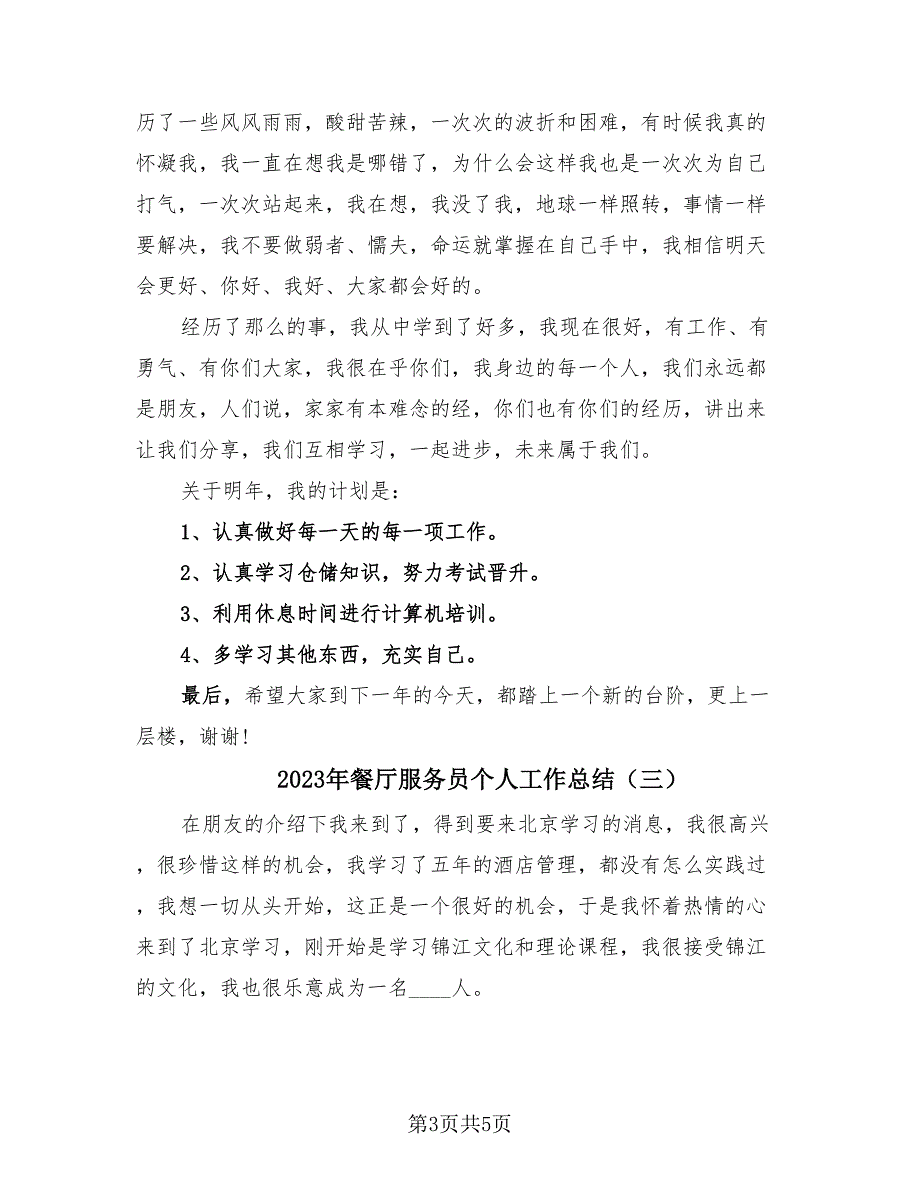 历了一些风风雨雨，酸甜苦辣，一次次的波折和困难，有时候我真的
怀凝我，我一直在想我是哪错了，为什么会这样我也是一次次为自己
打气，一次次站起来，我在想，我没了我，地球一样照转，事情一样
要解决，我不要做弱者、懦夫，命运就掌握在自己手中，我相信明天
会更好、你好、我好、大家都会好的。
经历了那么的事，我从中学到了好多，我现在很好，有工作、有
勇气、有你们大家，我很在乎你们，我身边的每一个人，我们永远都
是朋友，人们说，家家有本难念的经，你们也有你们的经历，讲出来
让我们分享，我们互相学习，一起进步，未来属于我们。
关于明年，我的计划是：
1、认真做好每一天的每一项工作。
2、认真学习仓储知识，努力考试晋升。
3、利用休息时间进行计算机培训。
4、多学习其他东西，充实自己。
最后，希望大家到下一年的今天，都踏上一个新的台阶，更上一
层楼，谢谢!
2023年餐厅服务员个人工作总结（三）
在朋友的介绍下我来到了，得到要来北京学习的消息，我很高兴
，很珍惜这样的机会，我学习了五年的酒店管理，都没有怎么实践过
，我想一切从头开始，这正是一个很好的机会，于是我怀着热情的心
来到了北京学习，刚开始是学习锦江文化和理论课程，我很接受锦江
的文化，我也很乐意成为一名____人。
第3页共5页